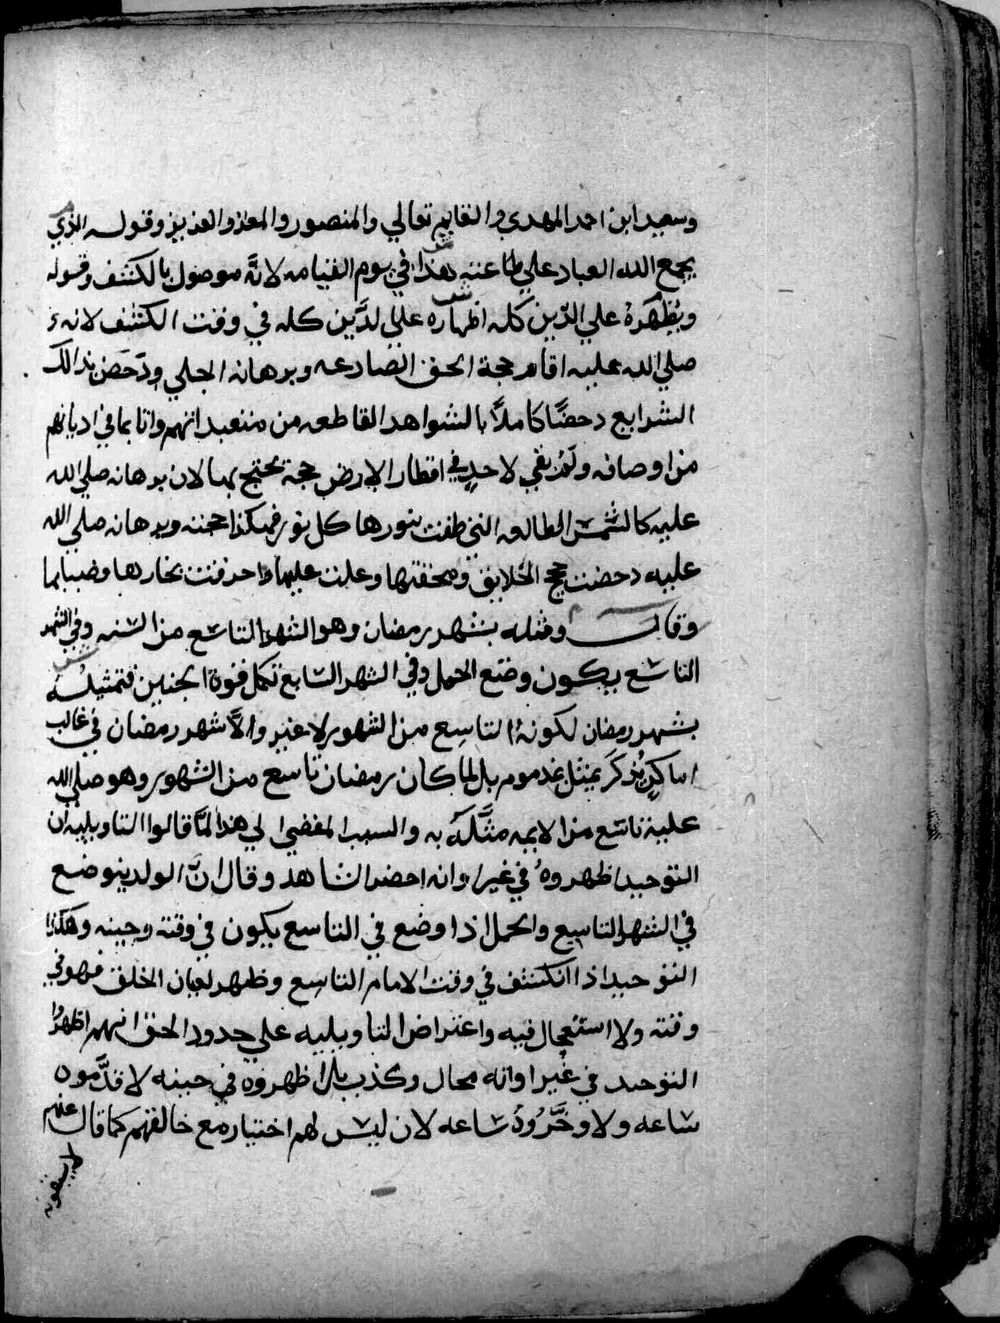 وسعيد ابن احمد المهدي والقايم تعالي والمنصور والمعز والعزيز وقوله الذي
يجمع الله العباد علي طاعته هذا في يوم القيامه لانَّه موصول بالكشف وقوله
ويُظْهرهُ علي الدّين كله اظهاره علي لدَّين كله في وقت الكشف لانه
صلي الله عليه اقام حجة الحق الصادعه وبرهانه الجلي ودَحَض بذالك
الشرايع دحضًا كاملاً بالشواهد القاطعه من متعبداتهم واتا بما في اديانهم
من اوصافه ولم يبقي لاحدٍ في اقطار الارض حجة يحتج بها لان برهانه صلي الله
عليه كالشمس الطالعه التي طفت بنورها كل نور فهكذا حجته وبرهانه صلي الله
عليه دحضت حجج الخلايق ومحقتها وعلت عليها واحرقت بخارها وضبابها
وقال ومثله بشهر رمضان وهو الشهر التاسع من السنه وفي الشهر
التاسع يكون وضع الحمل وفي الشهر السابع تكمل قوة الجنين فتمثيله
بشهر رمضان لكونهُ التاسع من الشهور لا غير والاَّ شهر رمضان في غالب
اماكنٍ يُذكَر بمثل مذموم بل لما كان رمضان تاسع من الشهور وهو صلي الله
عليه تاسع من الايمه مثَّله به والسبب المفضي الي هذا لمَّا قالوا التاويليه ان
التوحيد اظهروهُ في غير اوانه احضر الشاهد وقال انَّ الولد ينوضع
في الشهر التاسع والحمل اذا وضع في التاسع يكون في وقته وحينه وهكذا
التوحيد اذا انكشف في وقت الامام التاسع وظهر لعيان الخلق فهو في
وقته ولا استعجال فيه واعتراض التاويليه علي حدود الحق انهم اظهروا
التوحيد في غير اوانه محال وكذب بل اظهروه في حينه لا قدَّموه
ساعه ولا وخَّرُوهُ ساعه لان ليس لهم اختيار مع خالقهم كما قال عنهم
لا يسبقونه